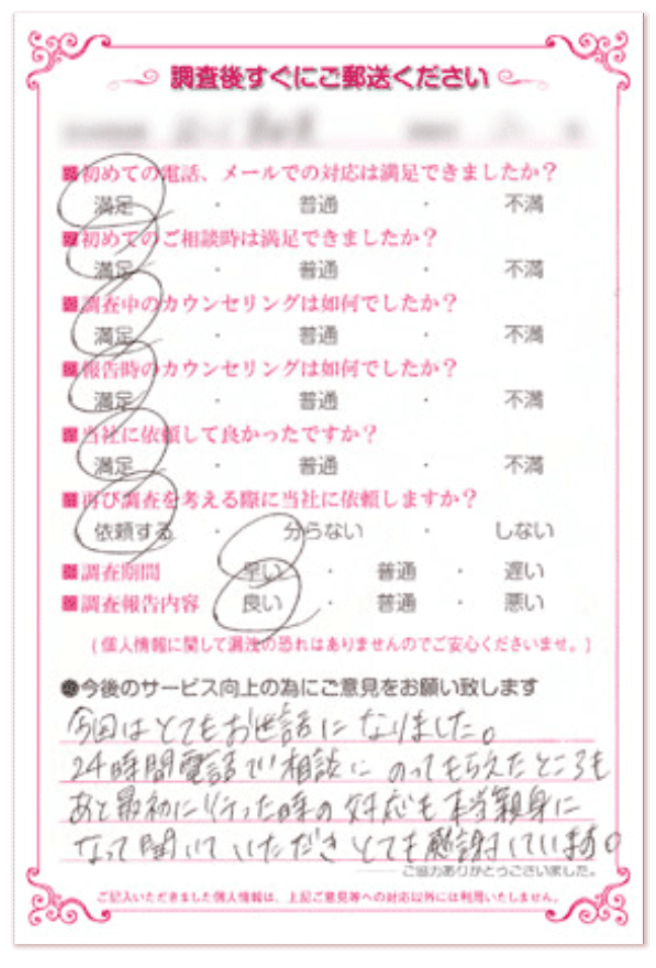 調査後すぐにご郵送ください
初めての電話、メールでの対応は満足できましたか?
満足 ・ 普通 ・ 不満
初めてのご相談時は満足できましたか?
満足 ・ 普通 ・ 不満
調査中のカウンセリングは如何でしたか?
満足 ・ 普通 ・ 不満
報告時のカウンセリングは如何でしたか?
満足 ・ 普通 ・ 不満
当社に依頼して良かったですか?
満足 ・ 普通 ・ 不満
再び調査を考える際に当社に依頼しますか?
依頼する ・ 分らない ・ しない
調査期間 早い ・ 普通 ・ 遅い
調査報告内容 良い ・ 普通 ・ 悪い
(個人情報に関して漏洩の恐れはありませんのでご安心くださいませ。)
●今後のサービス向上の為にご意見をお願い致します
今回はとてもお世話になりました。
24時間電話で相談にのってもらえたところも
あと最初に行った時の対応も本当親身に
なって聞いていただきとても感謝しています。
ご協力ありがとうございました。
ご記入いただきました個人情報は、上記ご意見等への対応以外には利用いたしません。